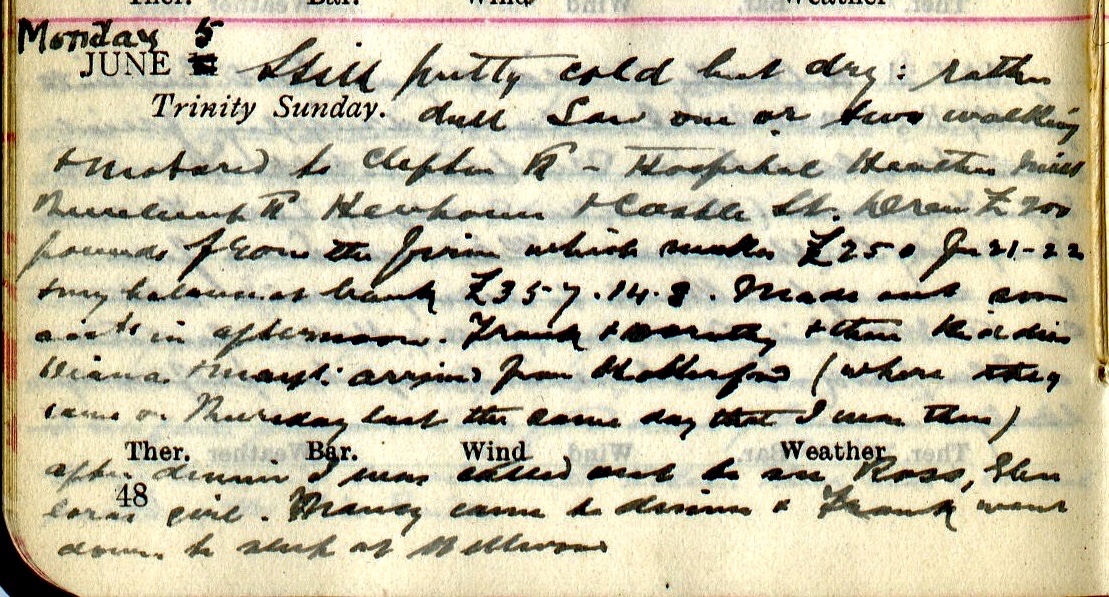 Ther. Bar. Wind Weather
Monday 5
JUNE Still pretty cold but dry: rather
Trinity Sunday. dull Saw one or two walking
& motored to Clifton Rd - Hospital
& Castle St. Drew £200
pounds from the firm which makes £250 Jan 21-22
& my balance at bank £357.14.8. Made out some
accts in afternoon. Frank & Dorothy & their kiddies
Diana & arrived from (where they
came on Thursday last the same day that I was there)
Ther. Bar. Wind Weather
after dinner I was called out to see Ross, Glen
48
girl. Nancy came to dinner & Frank went
down to sleep at